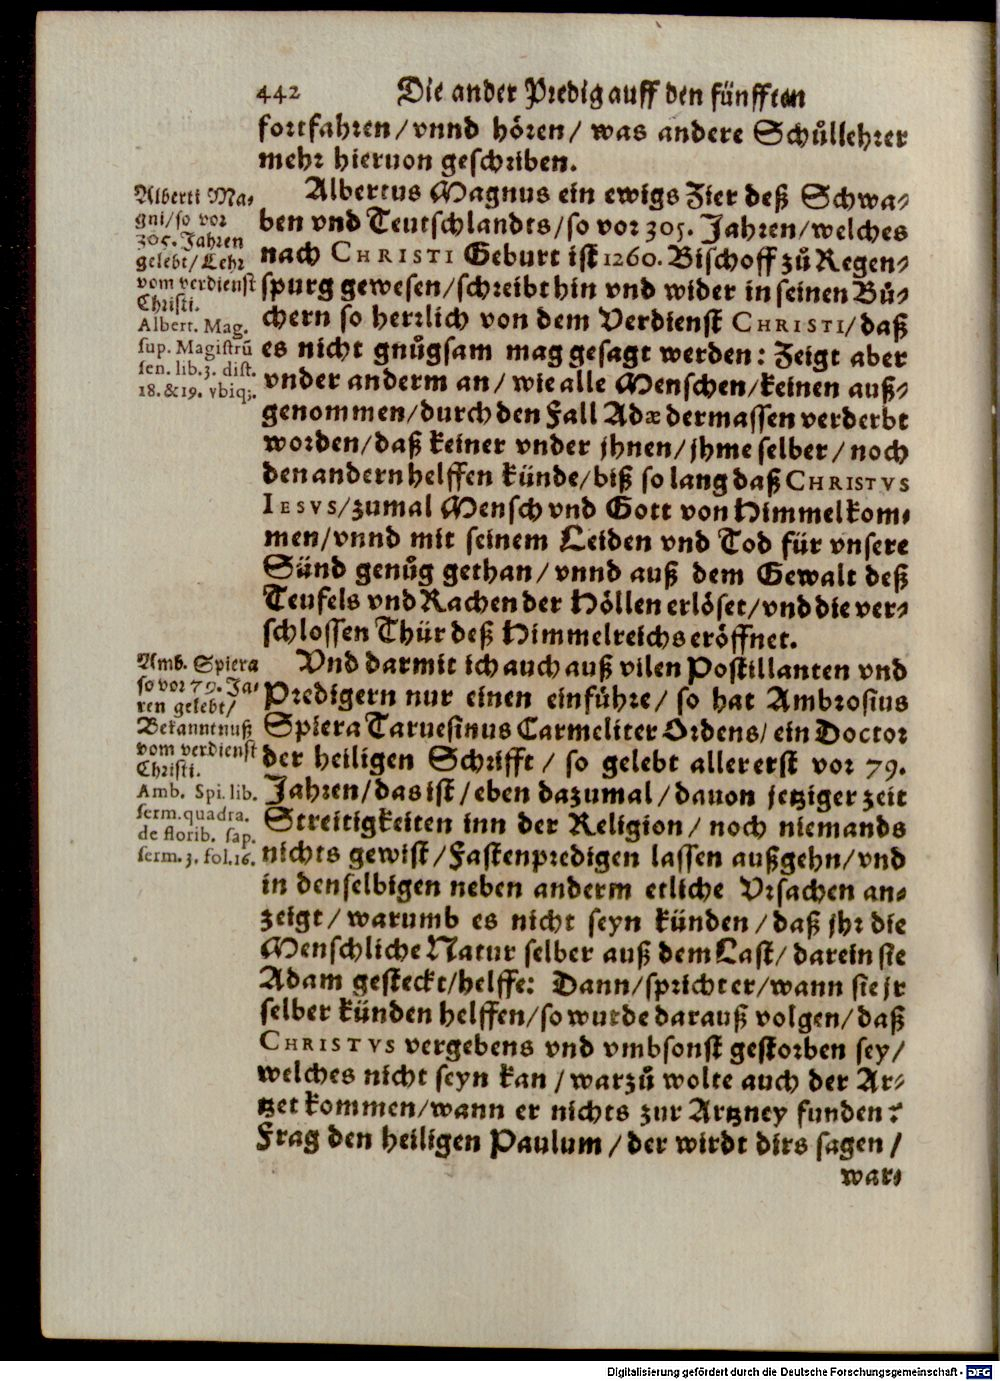 442 Die ander Predig auff den fünfften
fortfahren/vnnd hören/ was andere Schůllehrer
mehr hieruon geschriben.
Alberti Ma-
gni/so vor
305. Jahren
gelebt/Lehr
vom verdienst
Christi.
Albert. Mag.
sup. Magistrū
sen. lib.3. dist.
18.&19. vbiq;.
Albertus Magnus ein ewigs Zier deß Schwa-
ben vnd Teutschlandts/so vor 305. Jahren/welches
nach CHRISTI Geburt ist 1260. Bischoff zů Regen-
spurg gewesen/schreibt hin vnd wider in seinen Bů-
chern so herrlich von dem Verdienst CHRISTI/daß
es nicht gnůgsam mag gesagt werden: Zeigt aber
vnder anderm an/wie alle Menschen/keinen auß-
genommen/durch den Fall Adæ dermassen verderbt
worden/daß keiner vnder jhnen/jhme selber/noch
den andern helffen künde/biß so lang daß CHRISTVS
IESVS/zumal Mensch vnd Gott von Himmel kom-
men/vnnd mit seinem Leiden vnd Tod für vnsere
Sünd genůg gethan/vnnd auß dem Gewalt deß
Teufels vnd Rachen der Höllen erlöset/vnd die ver-
schlossen Thür deß Himmelreichs eröffnet.
Amb. Spiera
so vor 79. Ja-
ren gelebt/
Bekanntnuß
vom verdienst
Christi.
Amb. Spi. lib.
serm. quadra.
de florib. sap.
serm. 3. fol. 16.
Vnd darmit ich auch auß vilen Postillanten vnd
Predigern nur einen einführe/ so hat Ambrosius
Spiera Taruesinus Carmeliter Ordens/ein Doctor
der heiligen Schrifft/ so gelebt allererst vor 79.
Jahren/das ist/eben dazumal/dauon jetziger zeit
Streitigkeiten inn der Religion/noch niemands
nichts gewist/Fastenpredigen lassen außgehn/vnd
in denselbigen neben anderm etliche Vrsachen an-
zeigt/warumb es nicht seyn künden/daß jhr die
Menschliche Natur selber auß dem Last/darein sie
Adam gesteckt/helffe: Dann/spricht er/wann sie jr
selber künden helffen/so wurde darauß volgen/daß
CHRISTVS vergebens vnd vmbsonst gestorben sey/
welches nicht seyn kan/warzů wolte auch der Ar-
tzet kommen/wann er nichts zur Artzney funden?
Frag den heiligen Paulum/der wirdt dirs sagen/
war-
Digitalisierung gefördert durch die Deutsche Forschungsgemeinschaft - DFG